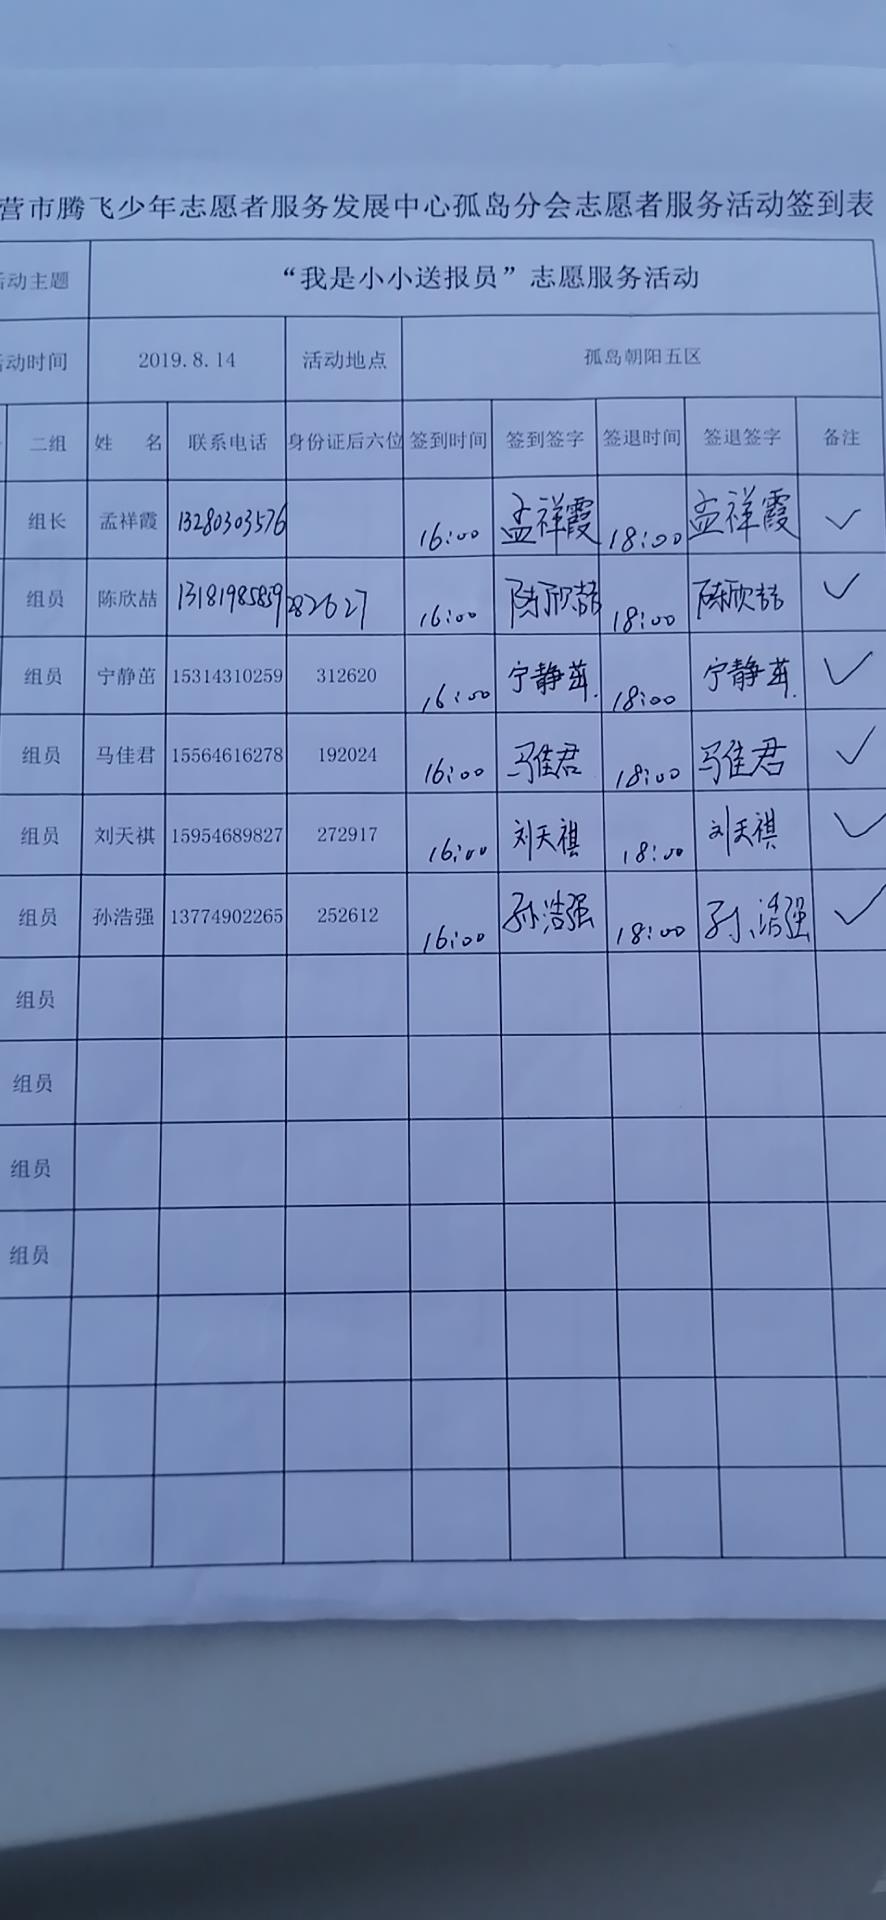 营市腾飞少年志愿者服务发展中心孤岛分会志愿者服务活动签到表
活动主题 “我是小小送报员”志愿服务活动
活动时间 2019.8.14 活动地点 孤岛朝阳五区
二组 姓 名 联系电话 身份证后六位 签到时间 签到签字 签退时间 签退签字 备注
组长 孟祥霞 13280303576 16:00 孟祥霞 18:00 孟祥霞 ✓
组员 陈欣喆 13181985859 282627 16:00 陈欣喆 18:00 陈欣喆 ✓
组员 宁静茁 15314310259 312620 16:00 宁静茁. 18:00 宁静茁. ✓
组员 马佳君 15564616278 192024 16:00 马佳君 18:00 马佳君 ✓
组员 刘天祺 15954689827 272917 16:00 刘天祺 18:00 刘天祺 ✓
组员 孙浩强 13774902265 252612 16:00 孙浩强 18:00 孙浩强 ✓
组员
组员
组员
组员